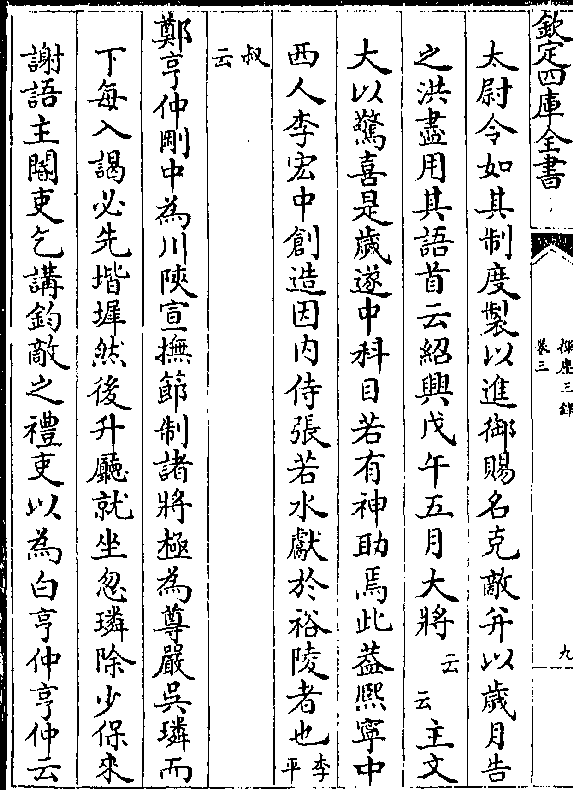 欽定四庫全書
揮麈三錄
卷三
九
太尉令如其制度製以進御賜名克敵并以歲月告
之洪盡用其語首云紹興戊午五月大將云云主文
大以驚喜是歲遂中科目若有神助焉此蓋熙寧中
西人李宏中創造因内侍張若水獻於裕陵者也李平
叔云
鄭亨仲剛中為川陜宣撫節制諸將極為尊嚴吳璘而
下每入謁必先堦墀然後升廳就坐忽璘除少保來
謝語主閽吏乞講鈞敵之禮吏以為白亨仲亨仲云